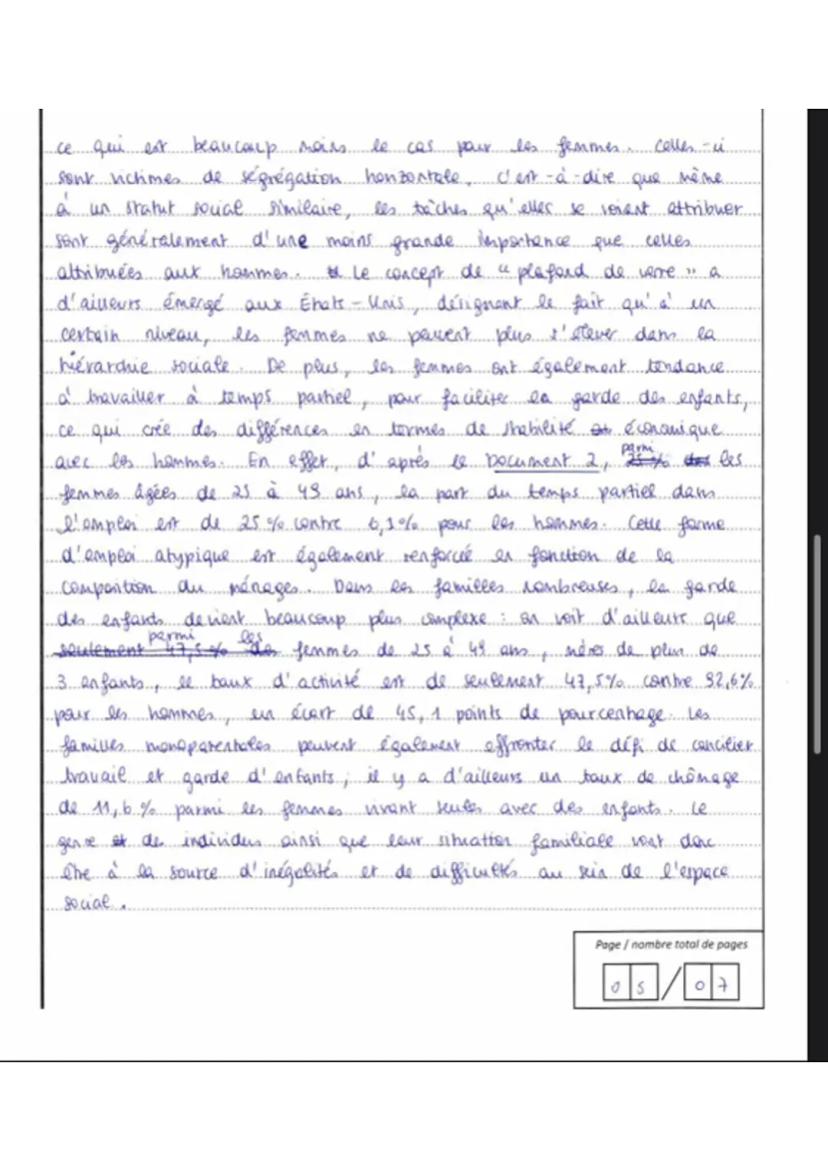 ce qui est beaucoup moins le cas pour les femmes. Celles-ci
sont victimes de ségrégation horizontale, c'est-à-dire que même
à un statut social similaire, les tâches qu'elles se voient attribuer
sont généralement d'une moins grande importance que celles
attribuées aux hommes. Le concept de "plafond de verre" a
d'ailleurs émergé aux États-Unis, désignant le fait qu'à un
certain niveau, les femmes ne peuvent plus s'élever dans la
hiérarchie sociale. De plus, les femmes ont également tendance
à travailler à temps partiel, pour faciliter la garde des enfants,
ce qui crée des différences en termes de stabilité économique
avec les hommes. En effet, d'après le Document 2, parmi les
femmes âgées de 25 à 49 ans, la part du temps partiel dans
l'emploi est de 25 % contre 6,9% pour les hommes. Cette forme
d'emploi atypique est également renforcée en fonction de la
composition du ménages. Dans les familles nombreuses, la garde
des enfants devient beaucoup plus complexe : on voit d'ailleurs que
seulement 47,5 % des parmi les femmes de 25 à 49 ans, mères de plus de
3 enfants, le taux d'activité est de seulement 47,5% contre 92,6%
pour les hommes, un écart de 45,1 points de pourcentage. Les
familles monoparentales peuvent également affronter le défi de concilier
travail et garde d'enfants ; il y a d'ailleurs un taux de chômage
de 11,6 % parmi les femmes vivant seules avec des enfants. Le
genre des individus ainsi que leur situation familiale vont donc
être à la source d'inégalités et de difficultés au sein de l'espace
social.
Page / nombre total de pages
05 / 07